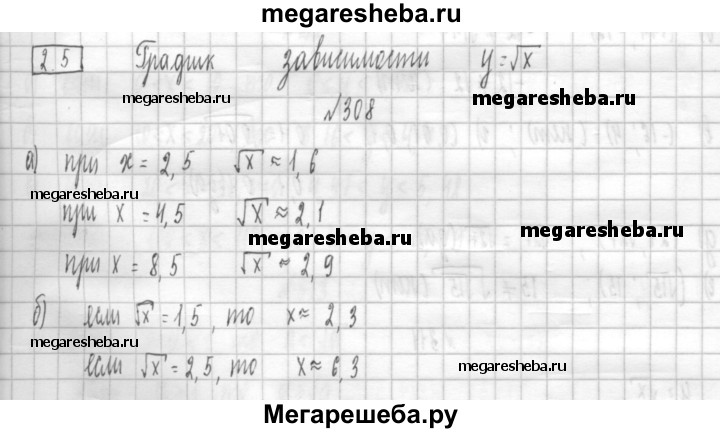 megaresheba.ru
2.5 График зависимости y = √x
megaresheba.ru
megaresheba.ru
№308
а) при x = 2,5 √x ≈ 1,6
megaresheba.ru
при x = 4,5 √x ≈ 2,1
megaresheba.ru
megaresheba.ru
при x = 8,5 √x ≈ 2,9
б) если √x = 1,5, то x ≈ 2,3
megaresheba.ru
megaresheba.ru
если √x = 2,5, то x ≈ 6,3
Мегарешеба.ру